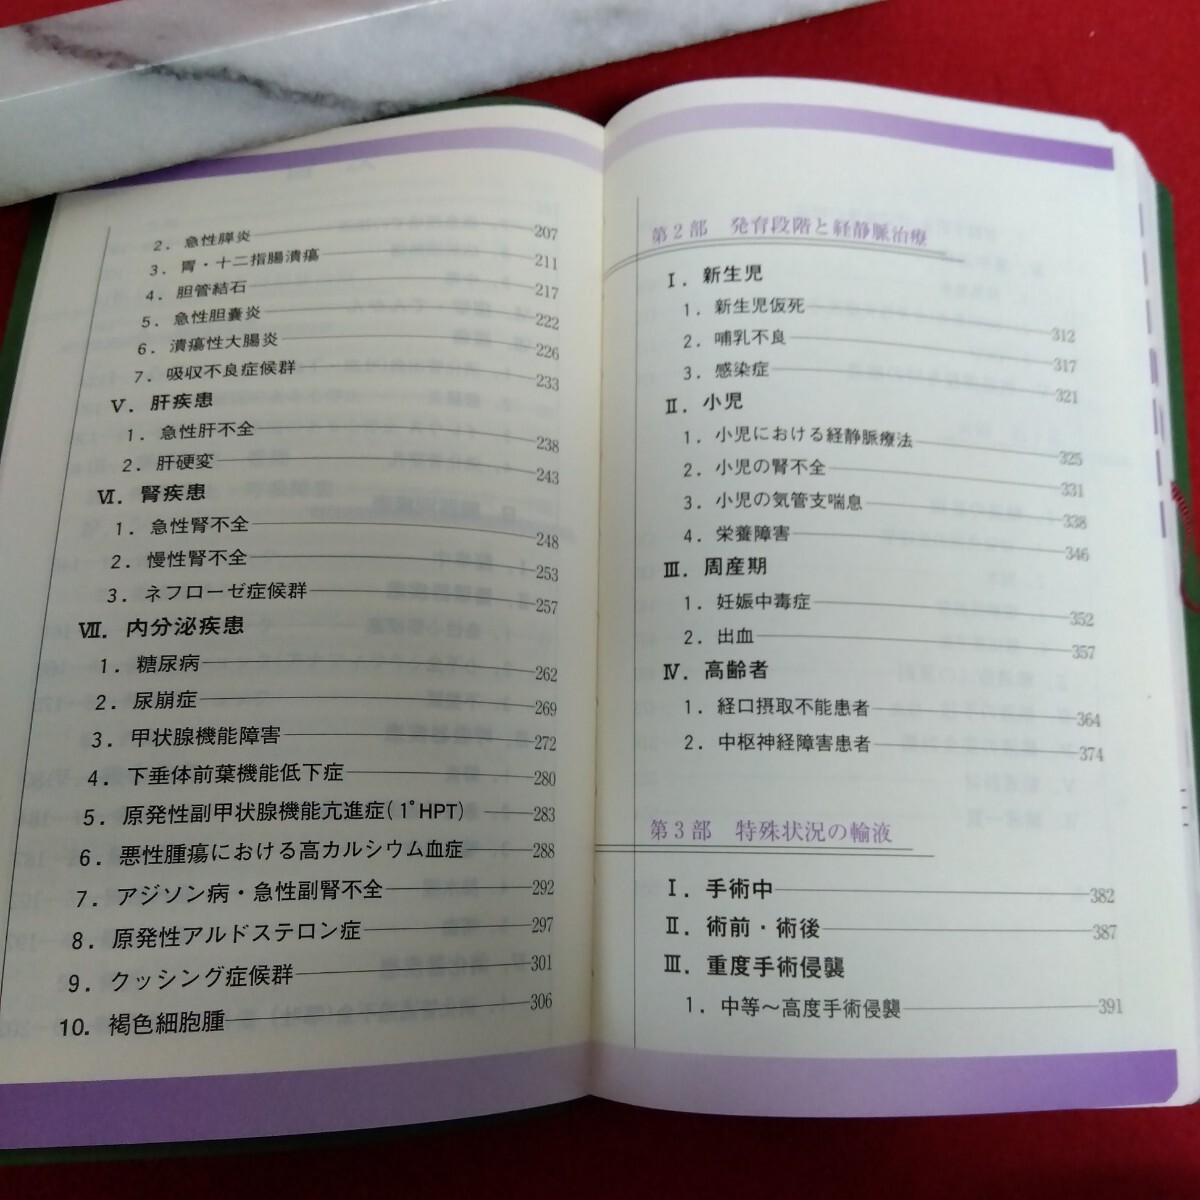 2. 急性膵炎 207
3. 胃・十二指腸潰瘍 211
4. 胆管結石 217
5. 急性胆嚢炎 222
6. 潰瘍性大腸炎 226
7. 吸収不良症候群 233
Ⅴ. 肝疾患
1. 急性肝不全 238
2. 肝硬変 243
Ⅵ. 腎疾患
1. 急性腎不全 248
2. 慢性腎不全 253
3. ネフローゼ症候群 257
Ⅶ. 内分泌疾患
1. 糖尿病 262
2. 尿崩症 269
3. 甲状腺機能障害 272
4. 下垂体前葉機能低下症 280
5. 原発性副甲状腺機能亢進症(1°HPT) 283
6. 悪性腫瘍における高カルシウム血症 288
7. アジソン病・急性副腎不全 292
8. 原発性アルドステロン症 297
9. クッシング症候群 301
10. 褐色細胞腫 306
第2部 発育段階と経静脈治療
Ⅰ. 新生児
1. 新生児仮死 312
2. 哺乳不良 317
3. 感染症 321
Ⅱ. 小児
1. 小児における経静脈療法 325
2. 小児の腎不全 331
3. 小児の気管支喘息 338
4. 栄養障害 346
Ⅲ. 周産期
1. 妊娠中毒症 352
2. 出血 357
Ⅳ. 高齢者
1. 経口摂取不能患者 364
2. 中枢神経障害患者 374
第3部 特殊状況の輸液
Ⅰ. 手術中 382
Ⅱ. 術前・術後 387
Ⅲ. 重度手術侵襲
1. 中等〜高度手術侵襲 391